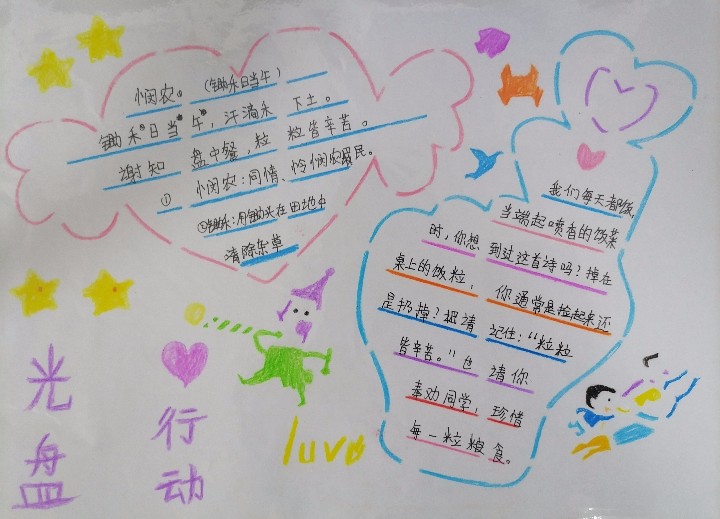 悯农①(锄禾日当午)
锄禾②日当午,汗滴禾下土。
谢知盘中餐,粒粒皆辛苦。
①悯农:同情、怜悯农民。
②锄头:用锄头在田地中
清除杂草
我们每天都饭,
当端起喷香的饭菜
时,你想到过这首诗吗?掉在
桌上的饭粒,你通常是捡起来还
是扔掉?把请记住:“粒粒
皆辛苦。”也请你
奉劝同学,珍惜
每一粒粮食。
光盘
行动
luve